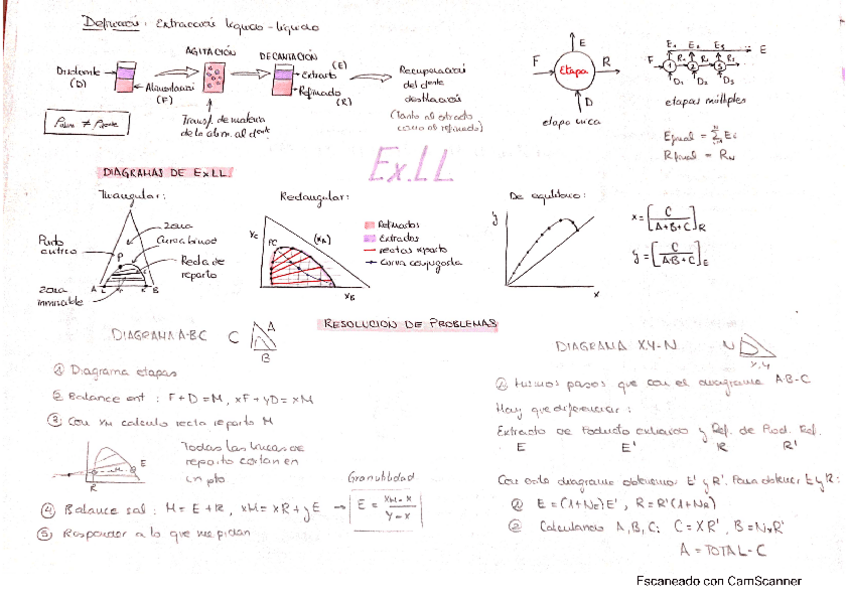 Definición: Extracción líquido-líquido
AGITACIÓN
DECANTACIÓN
Disolvente (D)
Alimentación (F)
(E)
Extracto
Refinado
(R)
Transf. de materia de la alim. al dente
Recuperación del dente
destilación
(tanto al extracto como al refinado)
F
E
R
Etapa
D
etapa única
E₁ E₂ E₃ E
F R₁ R₂ R₃
1 2 3
D₁ D₂ D₃
etapas múltiples
E final = Σ Ei
R final = RN
Ex.LL
DIAGRAMAS DE ExLL
Triangular:
Rectangular:
De equilibrio:
Punto crítico
P
zona
Curva binod
Recta de reparto
zona inmiscible
A
B
Yc
PC
(XA)
XB
Refinados
Extractos
rectas reparto
curva conjugada
y
x
x = [C / A+B+C]R
y = [C / A+B+C]E
RESOLUCIÓN DE PROBLEMAS
DIAGRAMA A-B-C
C
A
B
① Diagrama etapas
② Balance ent: F+D=M, xF+yD=xM
③ Con xM calculo recta reparto M
R
M
E
Todas las líneas de reparto cortan en un pto
Gran utilidad
④ Balance sal: M=E+R, xM=xR+yE → E = xM-x / y-x
⑤ Responder a lo que me pidan
DIAGRAMA X,Y-N
N
X,Y
① Mismos pasos que con el diagrama AB-C
Hay que diferenciar:
Extracto de Producto extraído y Ref. de Prod. Ref.
E E' R R'
Con este diagrama obtenemos E' y R'. Para obtener E y R:
① E=(1+NE)E', R=R'(1+NR)
② Calculando A,B,C: C=XR', B=NxR'
A=TOTAL-C
Escaneado con CamScanner